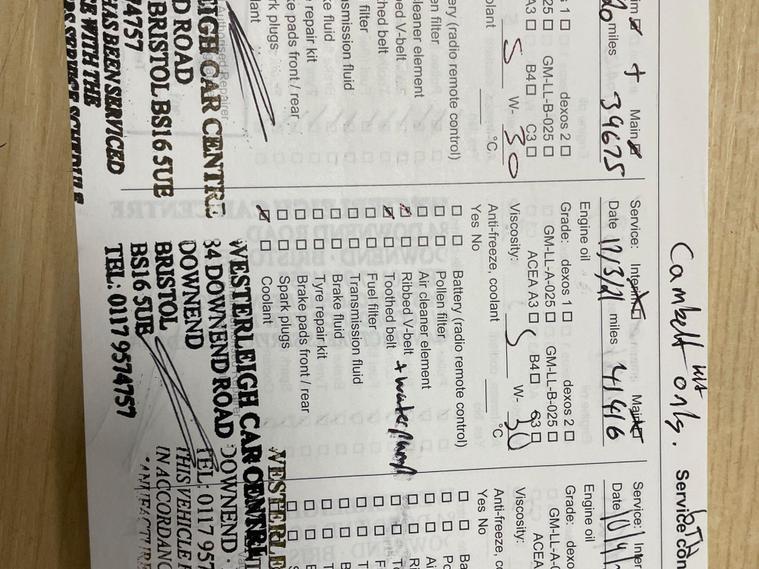 Cambelt Kit only.
Service: Interim Main
Date 17/3/21 miles 41416
Engine oil
Grade: dexos 1 dexos 2
GM-LL-A-025 GM-LL-B-025
ACEA A3 B4 C3
Viscosity: 5 W- 30
Anti-freeze, coolant °C
Yes No
Battery (radio remote control)
Pollen filter
Air cleaner element
Ribbed V-belt
Toothed belt + water pump
Fuel filter
Transmission fluid
Brake fluid
Tyre repair kit
Brake pads front / rear
Spark plugs
Coolant
WESTERLEIGH CAR CENTRE
84 DOWNEND ROAD
DOWNEND
BRISTOL
BS16 5UB
TEL: 0117 9574757
miles 34675
Main
dexos 2
GM-LL-B-025
B4 C3
5 W- 30
°C
ery (radio remote control)
en filter
leaner element
bed V-belt
thed belt
filter
smission fluid
ke fluid
repair kit
ke pads front / rear
rk plugs
olant
EIGH CAR CENTRE
D ROAD
BRISTOL BS16 5UE
74757
HAS BEEN SERVICED
E WITH THE
Service: Inter
Date
Engine oil
Grade: dexo
GM-LL-A-0
ACEA
Viscosity:
Anti-freeze, co
Yes No
WESTERLE
DOWNEND
TEL: 0117 957
THIS VEHICLE H
IN ACCORDANC